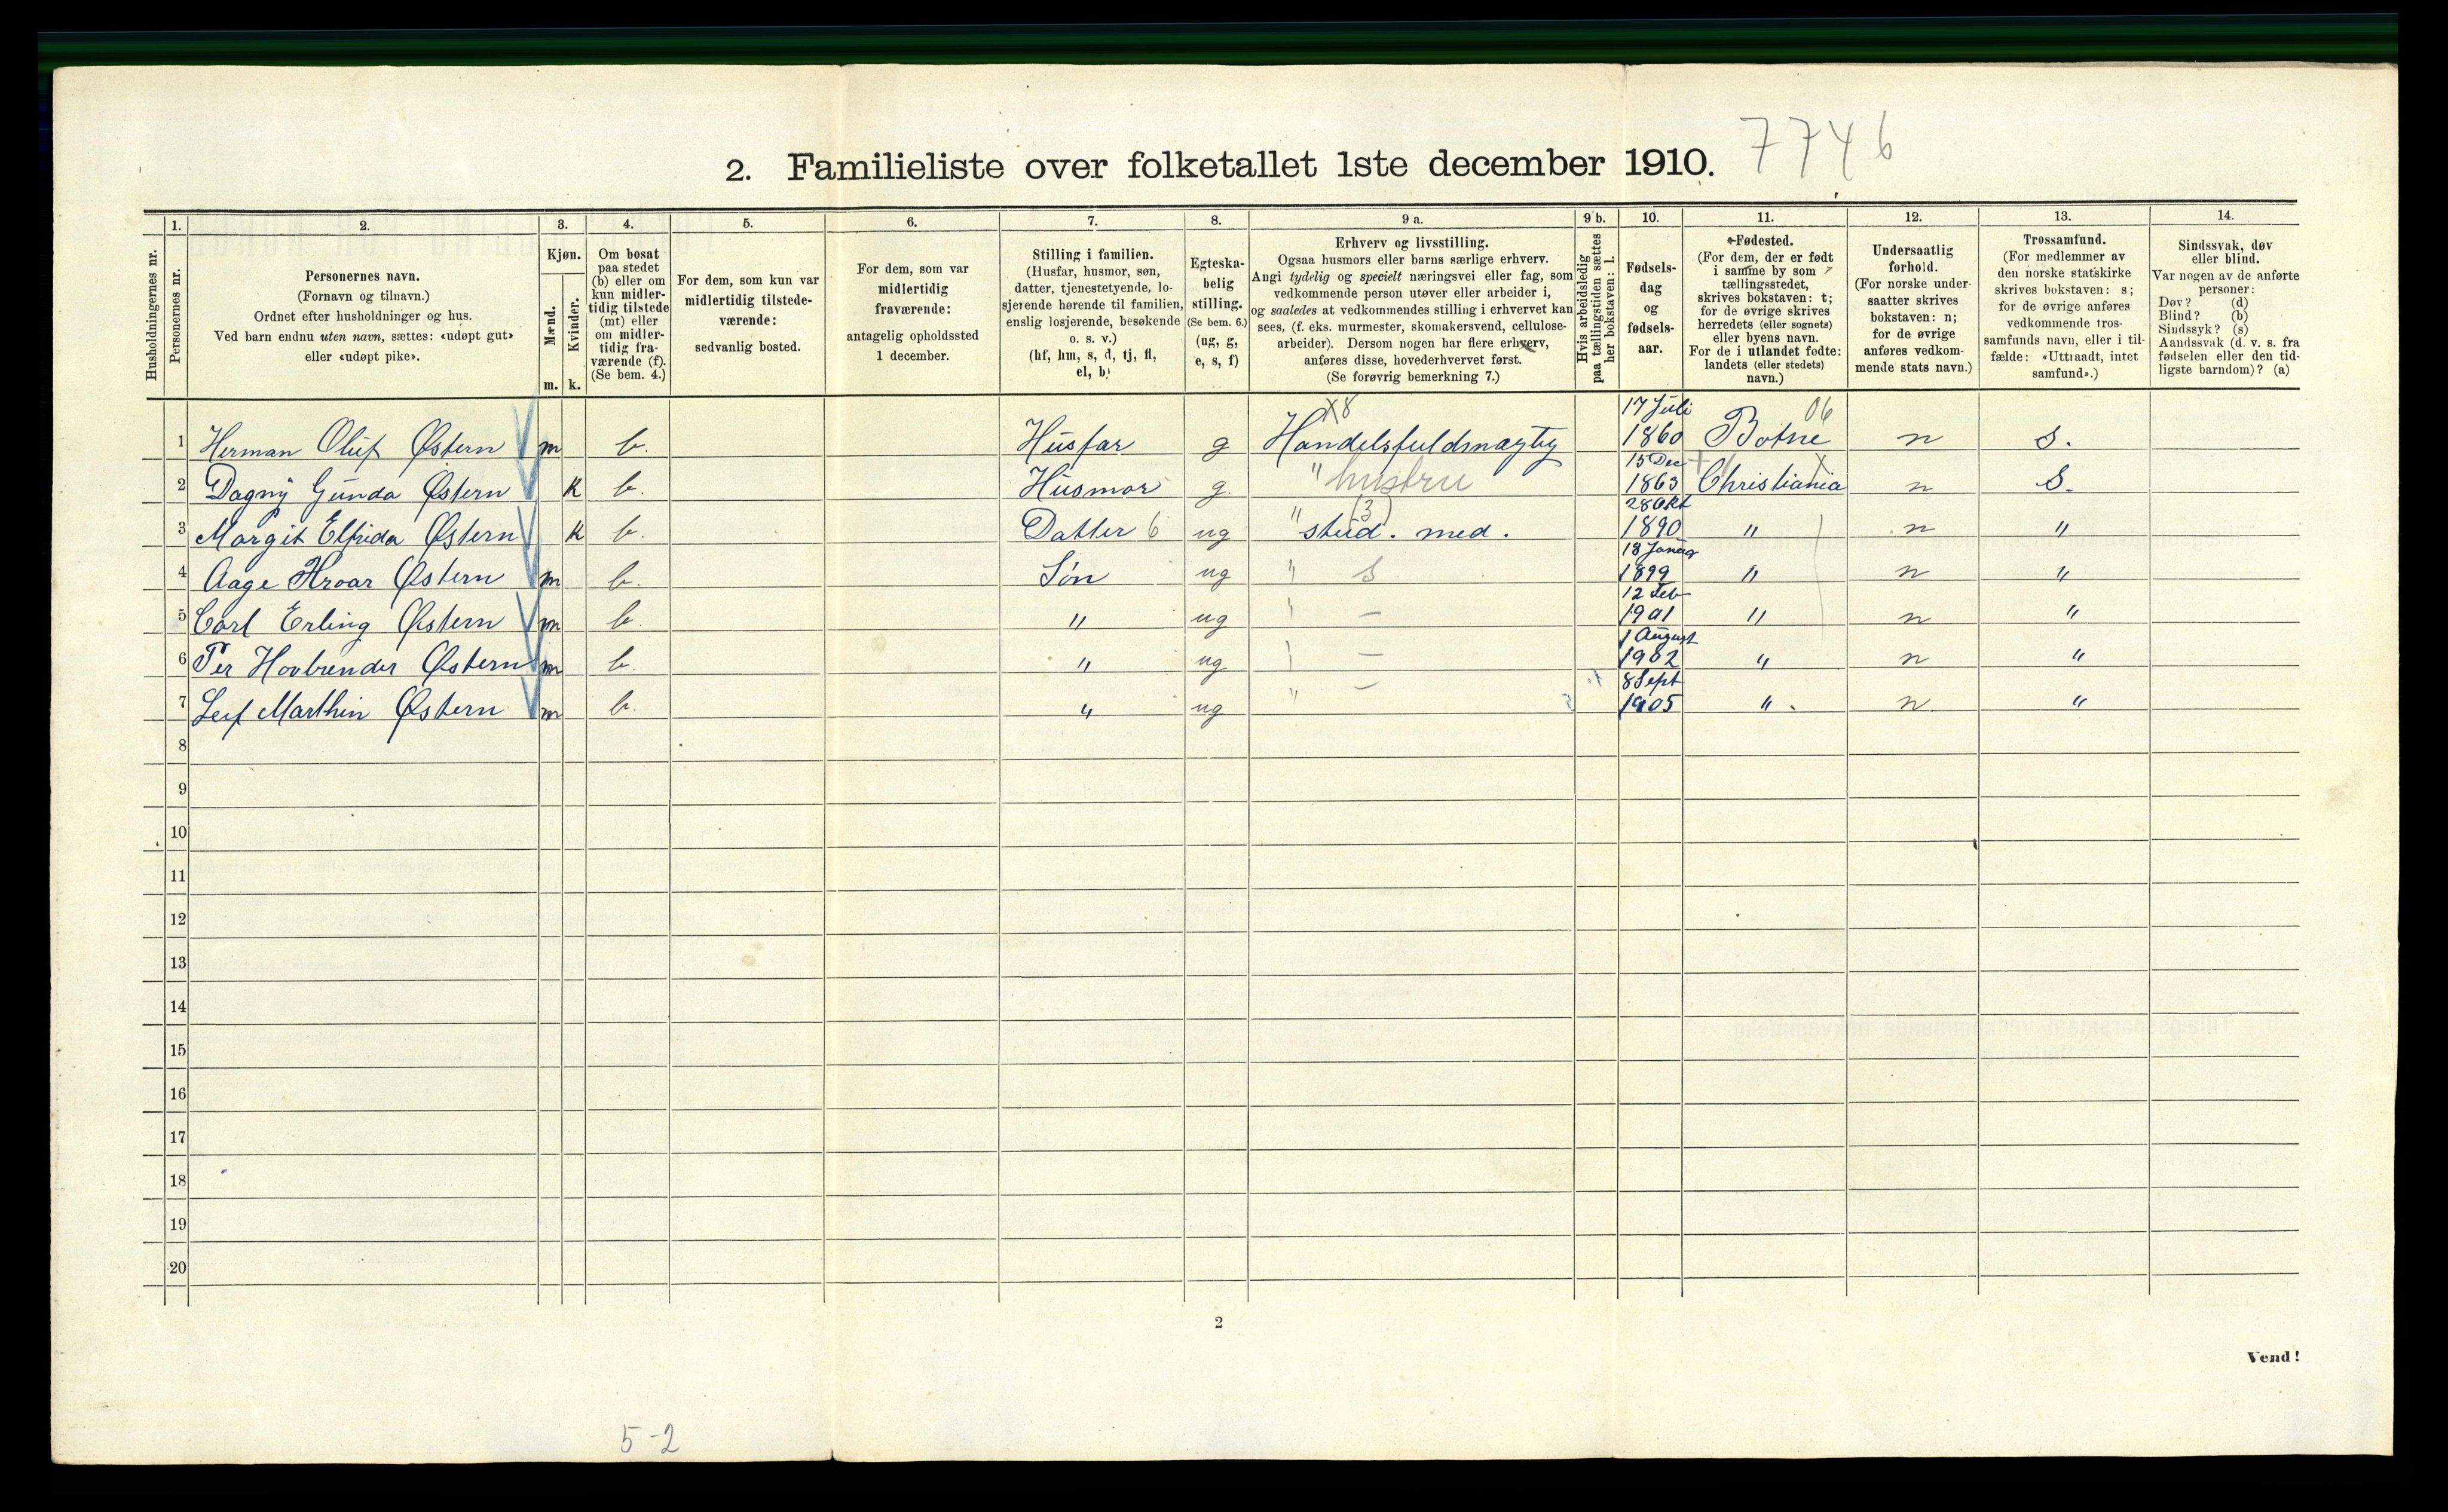 2. Familieliste over folketallet 1ste december 1910. 7746
Husholdningernes nr.
1. Personernes nr.
2. Personernes navn.
(Fornavn og tilnavn.)
Ordnet efter husholdninger og hus.
Ved barn endnu uten navn, sættes: «udøpt gut»
eller «udøpt pike».
3. Kjøn.
Mænd. m.
Kvinder. k.
4. Om bosat
paa stedet
(b) eller om
kun midler-
tidig tilstede
(mt) eller
om midler-
tidig fra-
værende (f).
(Se bem. 4.)
5. For dem, som kun var
midlertidig tilstede-
værende:
sedvanlig bosted.
6. For dem, som var
midlertidig
fraværende:
antagelig opholdssted
1 december.
7. Stilling i familien.
(Husfar, husmor, søn,
datter, tjenestetyende, lo-
sjerende hørende til familien,
enslig losjerende, besøkende
o. s. v.)
(hf, hm, s, d, tj, fl,
el, b)
8. Egteska-
belig
stilling.
(Se bem. 6.)
(ug, g,
e, s, f)
9 a. Erhverv og livsstilling.
Ogsaa husmors eller barns særlige erhverv.
Angi tydelig og specielt næringsvei eller fag, som
vedkommende person utøver eller arbeider i,
og saaledes at vedkommendes stilling i erhvervet kan
sees, (f. eks. murmester, skomakersvend, cellulose-
arbeider). Dersom nogen har flere erhverv,
anføres disse, hovederhvervet først.
(Se forøvrig bemerkning 7.)
9 b. Hvis arbeidsledig
paa tællingstiden sættes
her bokstaven: l.
10. Fødsels-
dag
og
fødsels-
aar.
11. Fødested.
(For dem, der er født
i samme by som
tællingsstedet,
skrives bokstaven: t;
for de øvrige skrives
herredets (eller sognets)
eller byens navn.
For de i utlandet fødte:
landets (eller stedets)
navn.)
12. Undersaatlig
forhold.
(For norske under-
saatter skrives
bokstaven: n;
for de øvrige
anføres vedkom-
mende stats navn.)
13. Trossamfund.
(For medlemmer av
den norske statskirke
skrives bokstaven: s;
for de øvrige anføres
vedkommende tros-
samfunds navn, eller i til-
fælde: «Uttraadt, intet
samfund».)
14. Sindssvak, døv
eller blind.
Var nogen av de anførte
personer:
Døv? (d)
Blind? (b)
Sindssyk? (s)
Aandssvak (d. v. s. fra
fødselen eller den tid-
ligste barndom)? (a)
X8 17 Juli 06
1 Herman Oluf Østern m b. Husfar g Handelsfuldmægtig 1860 Botne n s.
15 Dec
2 Dagny Gunda Østern k b. Husmor g. " hustru 1863 Christiania n s.
(3) 28 Okt
3 Margit Elfrida Østern k b. Datter 6 ug " stud. med. 1890 " n "
4 Aage Hroar Østern m b. Søn ug " s 1899 " n "
12 Feb
5 Carl Erling Østern m b. " ug " — 1901 " n "
1 August
6 Per Østern m b. " ug " — 1902 " n "
8 Sept
7 Leif Marthin Østern m b. " ug " — 1905 " n "
8
9
10
11
12
13
14
15
16
17
18
19
20
2
Vend!
5-2